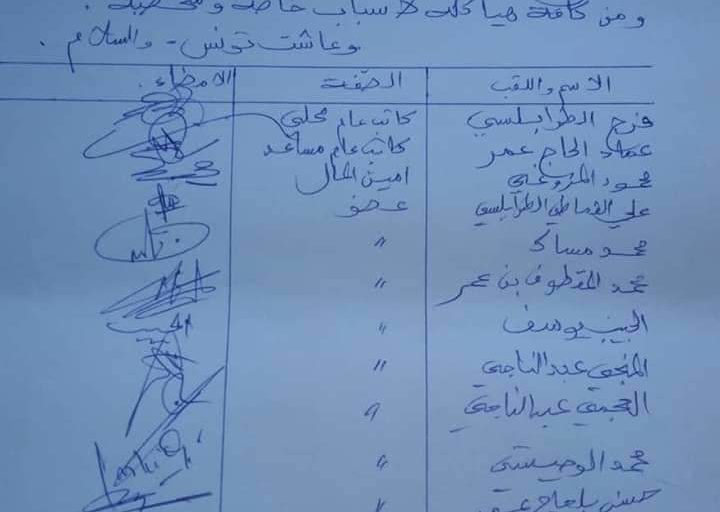 ومن كافة هياكله لأسباب خاصة و شخصية.
وعاشت تونس - والسلام.
الاسم واللقب الصفة الامضاء
فرج الطرابلسي كاتب عام محلي
عماد الحاج عمر كاتب عام مساعد
محمود المزوغي امين المال
علي القماطي الطرابلسي عضو
محمد مساكد "
محمد المقطوف بن عمر "
الحبيب يوسف "
المنجي عبد الناجي "
العجمي عبد الناجي "
محمد الوحيشي "
حسن بلحاج "